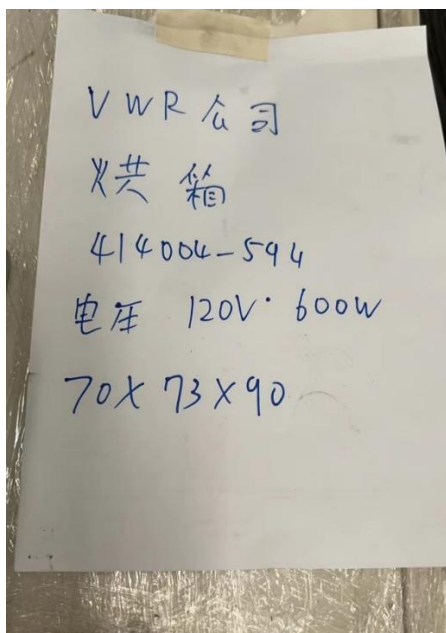 VWR公司
烘箱
414004-594
电压 120V· 600W
70X73X90